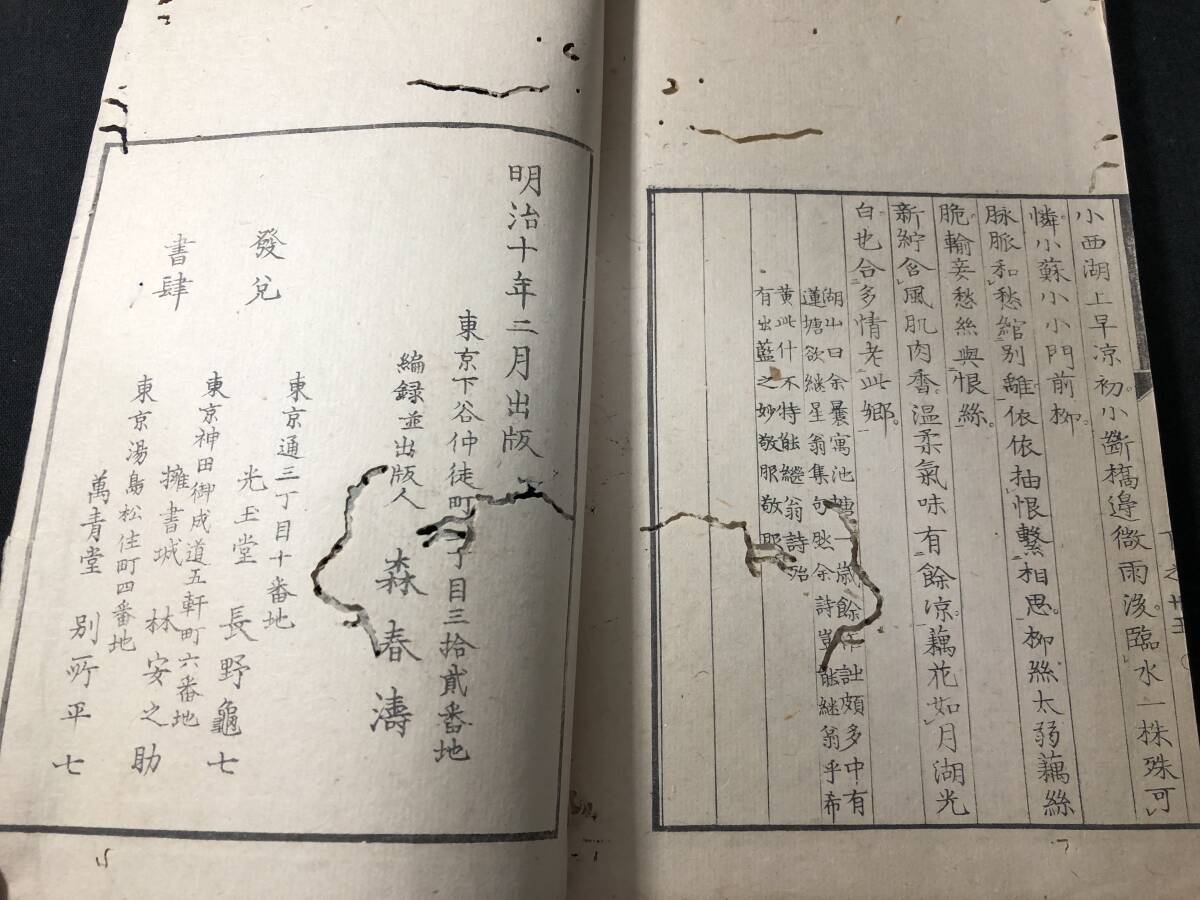 小西湖上早涼初。小斷橋邊微雨後。臨水一株殊可
憐。小蘇小小門前柳。
脉脈和愁綰別離。依依抽恨繫相思。柳絲太弱藕絲
脆。輸妾愁絲與恨絲。
新紵含風肌肉香。温柔氣味有餘涼。藕花如月湖光
白。也合多情老此鄉。
湖山曰余曩寓池塘一歳餘作詿頗多中有
蓮塘欲繼星翁集句然余詩豈能繼翁乎希
黄此什不特能繼翁詩殆
有出藍之妙敬服敬服
下之廿五
明治十年二月出版
東京下谷仲徒町 丁目三拾貳番地
編録並出版人 森春濤
發兌
書肆
東京通三丁目十番地
光玉堂 長野龜七
東京神田御成道五軒町六番地
擁書城 林安之助
東京湯島松住町四番地
萬青堂 別所平七